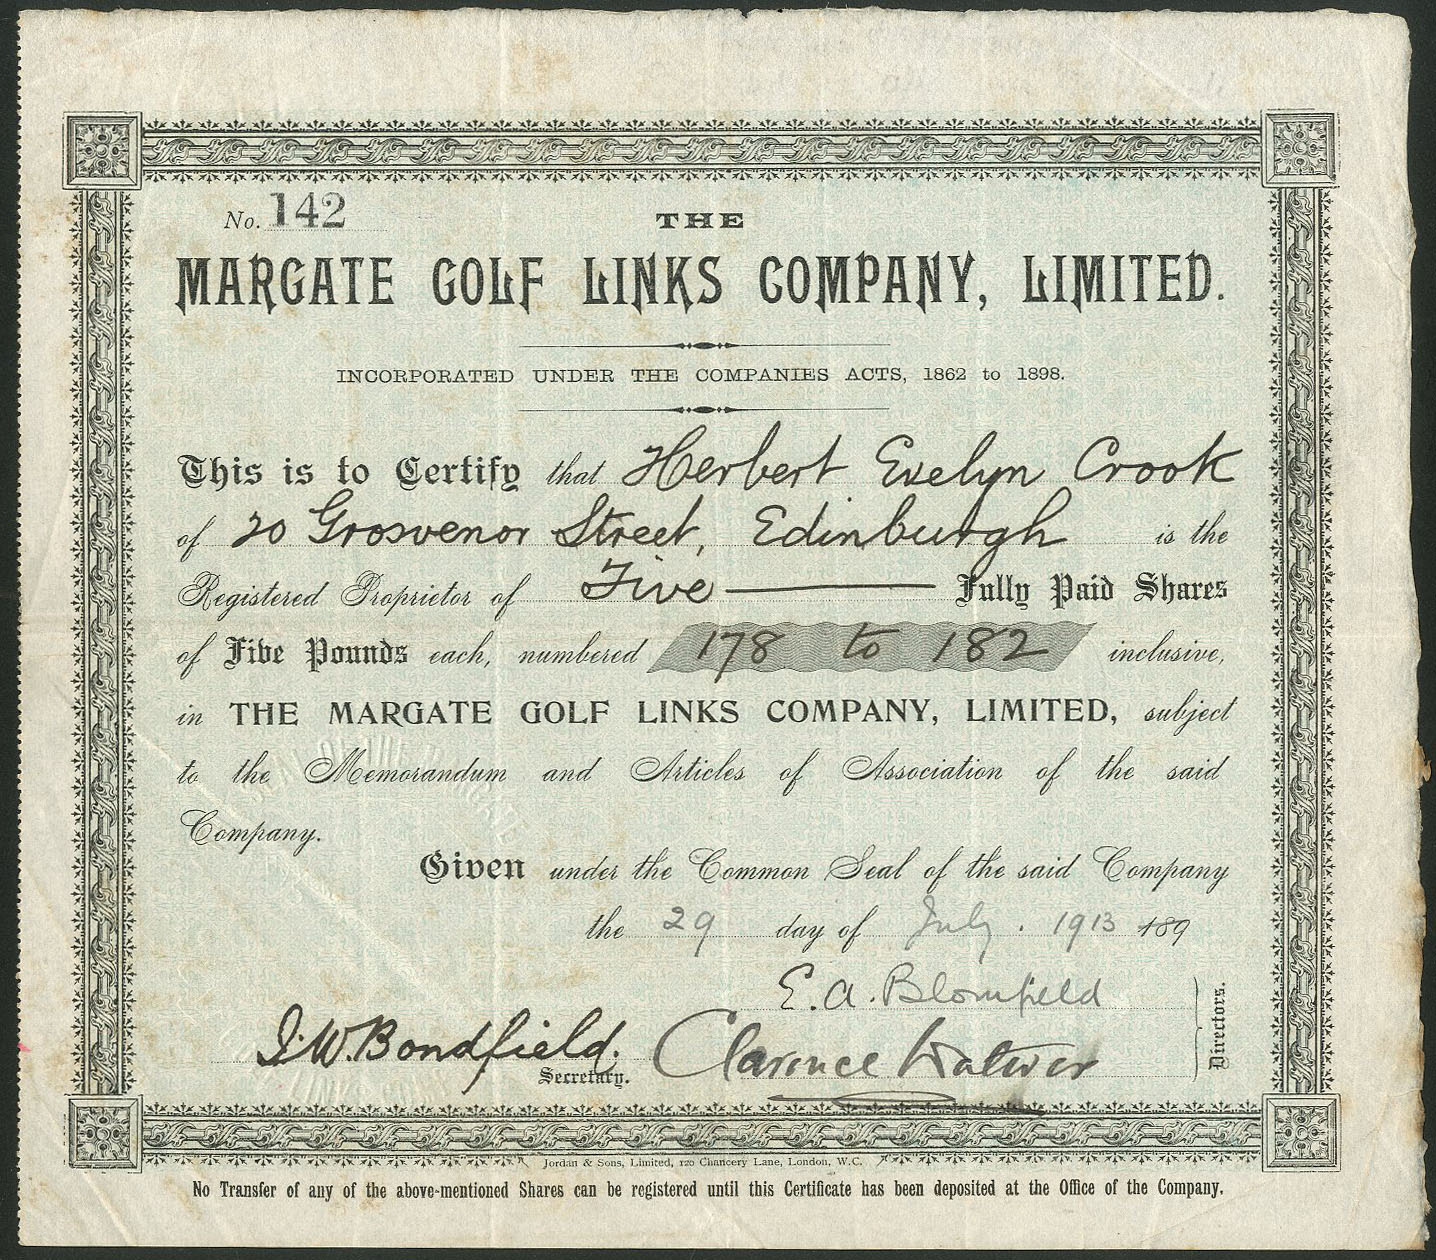 No. 142
THE
MARGATE GOLF LINKS COMPANY, LIMITED.
INCORPORATED UNDER THE COMPANIES ACTS, 1862 to 1898.
This is to Certify that Herbert Evelyn Crook
of 20 Grosvenor Street, Edinburgh is the
Registered Proprietor of Five Fully Paid Shares
of Five Pounds each, numbered 178 to 182 inclusive,
in THE MARGATE GOLF LINKS COMPANY, LIMITED, subject
to the Memorandum and Articles of Association of the said
Company.
Given under the Common Seal of the said Company
the 29 day of July. 1913 189
E. A. Blomfield
J. W. Bondfield. Clarence
Secretary.
Directors.
Jordan & Sons, Limited, 120 Chancery Lane, London, W.C.
No Transfer of any of the above-mentioned Shares can be registered until this Certificate has been deposited at the Office of the Company.